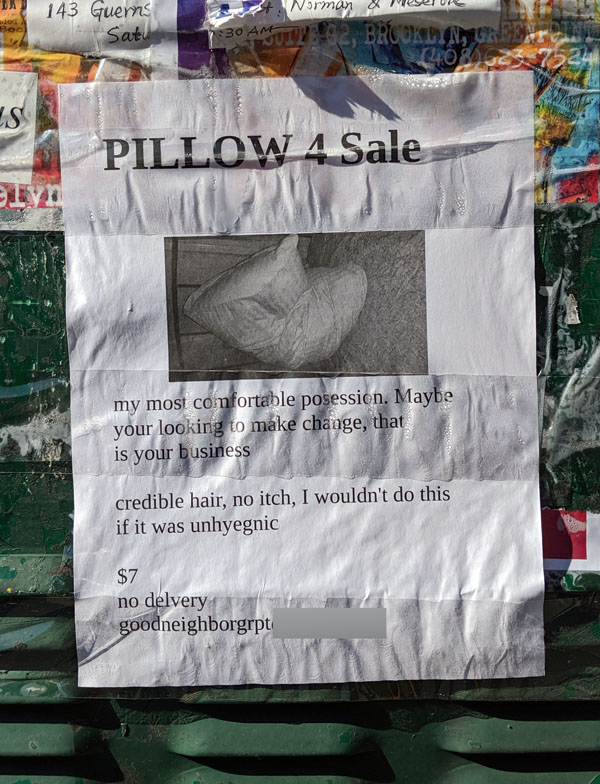 143 Guerns
Norman &
Satu
:30 AM
92, BROOKLYN, GREENPOIN
elyn
PILLOW 4 Sale
my most comfortable posession. Maybe
your looking to make change, that
is your business
credible hair, no itch, I wouldn't do this
if it was unhyegnic
$7
no delvery
goodneighborgrpt